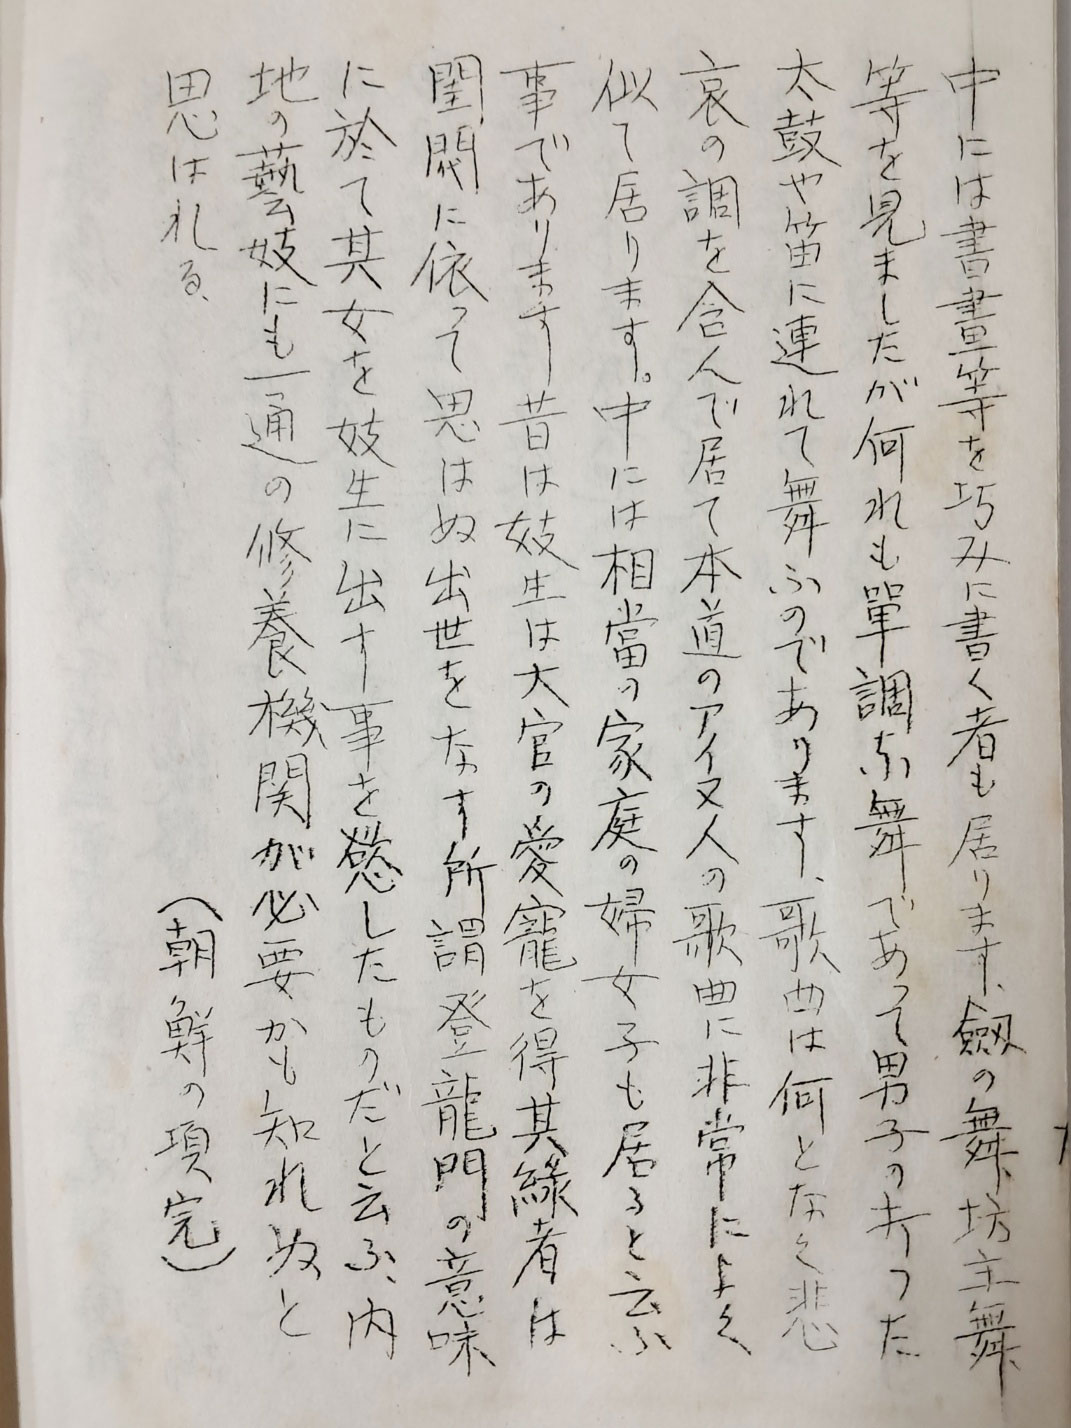 中には書畫等を巧みに書く者も居ります、劔の舞、坊主舞、
等を見ましたが何れも單調な舞であって男子の打った
太鼓や笛に連れて舞ふのであります、歌曲は何となく悲
哀の調を含んで居て本道のアイヌ人の歌曲に非常によく
似て居ります。中には相當の家庭の婦女子も居ると云ふ
事であります昔は妓生は大官の愛寵を得其縁者は
閨閥に依って思はぬ出世をなす所謂登龍門の意味
に於て其女を妓生に出す事を慾したものだと云ふ、内
地の藝妓にも一通の修養機関が必要かも知れぬと
思はれる、
（朝鮮の項完）